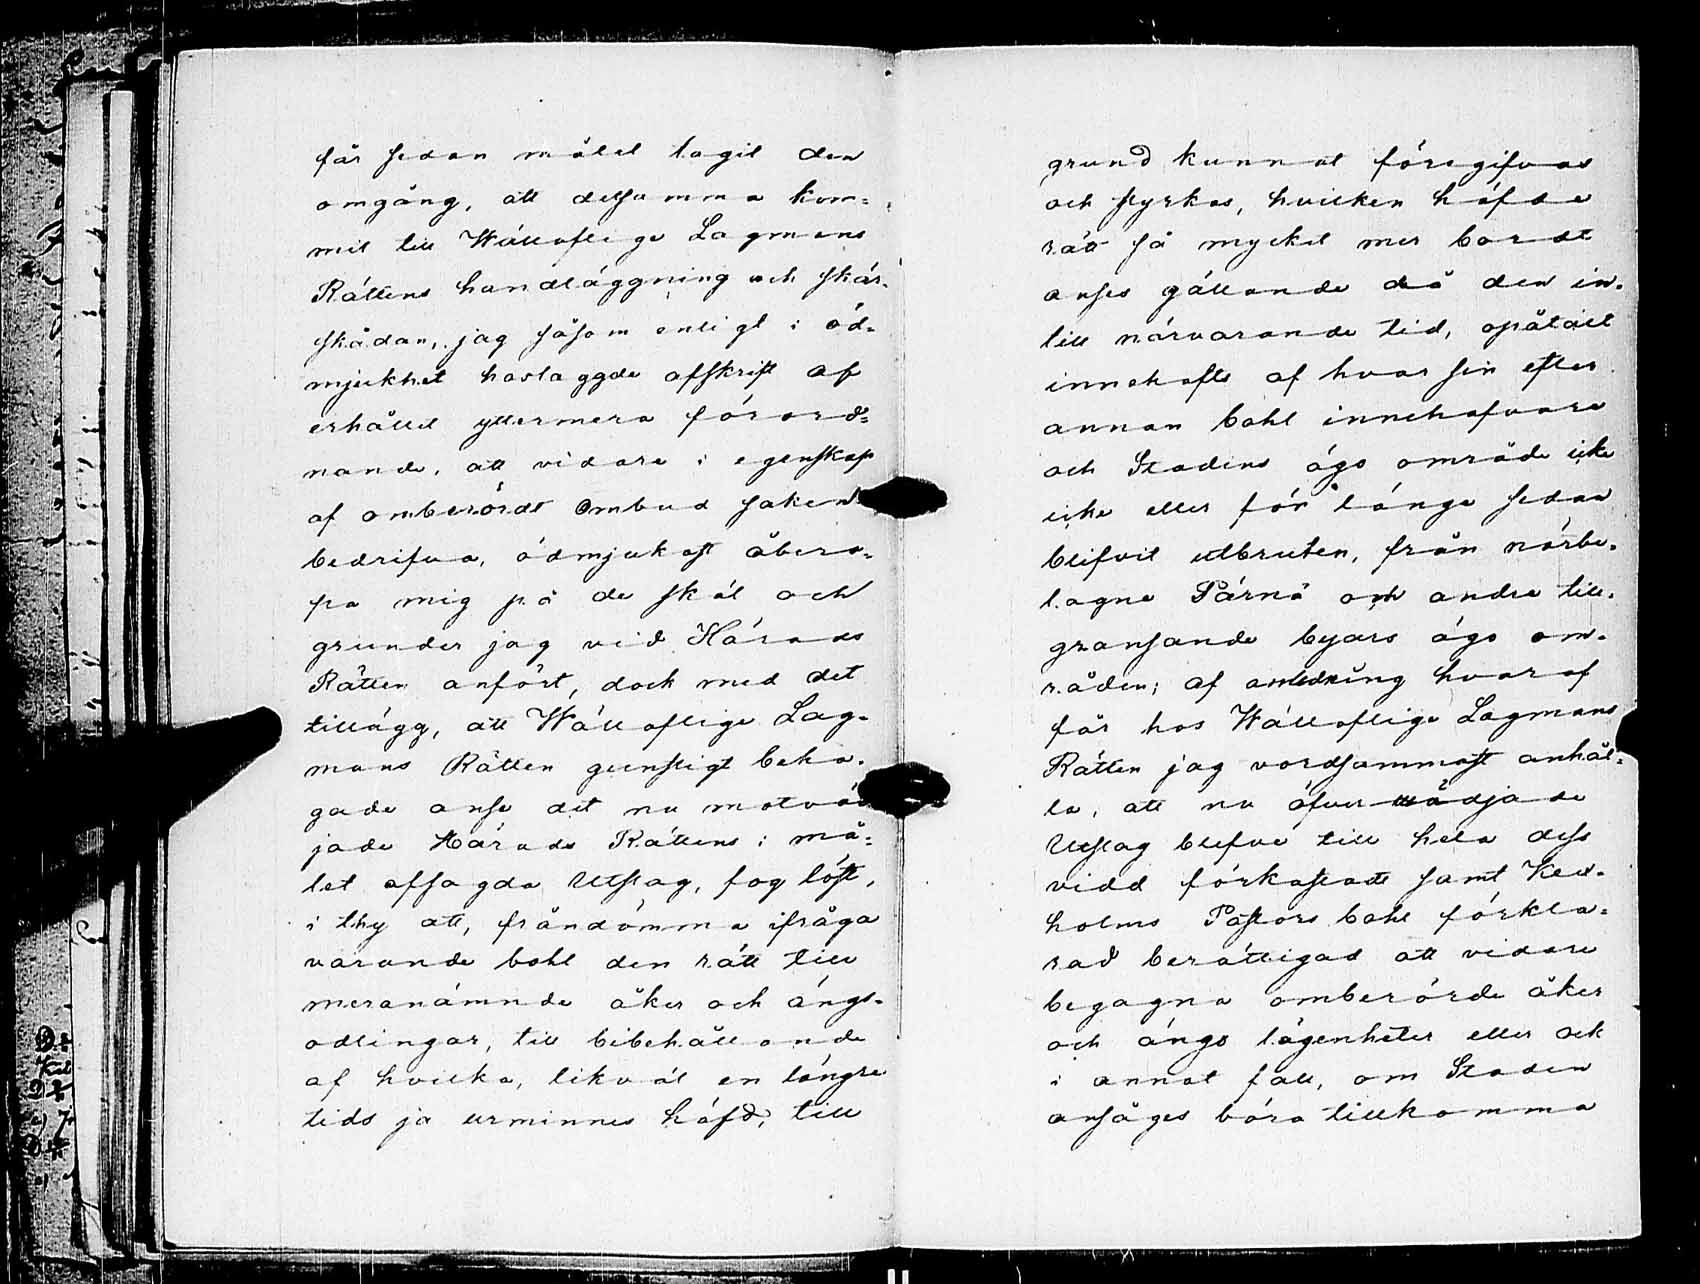 får sedan målet tagit den
omgång, att detsamma kom-
mit till Wällofliga Lagmans
Rättens handläggning och skär-
skådan, jag såsom enligt i öd-
mjukhet hoslaggde afskrift af
erhållit yttermera förord-
nande, att vidare i egenskap
af omberördt ombud saken
bedrifva, ödmjukast åbero-
pa mig på de skäl och
grunder jag vid Härads
Rätten anfört, dock med det
tillägg, att Wällofliga Lag-
mans Rätten gunstigt beha-
gade anse det nu motvä
jade Härads Rättens i må-
let afsagda Utslag, foglöst,
i thy att, fråndömma ifråga
varande bohl den rätt till
meranämnde åker och ängs-
odlingar, till bibehållande
af hvilka, likväl en längre
tids ja urminnes häfd, till
grund kunnat föregifvas
och styrkas, hvilken häfde
rätt så mycket mer bordt
anses gällande då den in-
till närvarande tid, opåtalt
innehafts af hvar sin efter
annan bohl innehafvare
och Stadens ägo område icke
icke eller för länge sedan
blifvit utbruten, från närbe-
lägne Pärnä och andre till-
gränsande byars ägo om-
råden; af anledning hvaraf
får hos Wällofliga Lagmans
Rätten jag vordsammast anhål-
la, att nu öfver
Utslag blefve till hela dess
vidd förkastadt samt Kex-
holms Pastors bohl förkla-
rad berättigad att vidare
begagna omberörde åker
och ängs lägenheter eller ock
i annat fall, om Staden
ansåges böra tillkomma